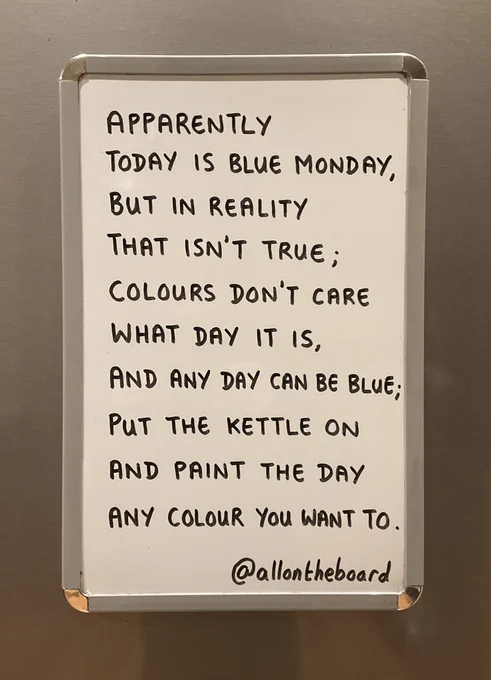 APPARENTLY
TODAY IS BLUE MONDAY,
BUT IN REALITY
THAT ISN'T TRUE;
COLOURS DON'T CARE
WHAT DAY IT IS,
AND ANY DAY CAN BE BLUE;
PUT THE KETTLE ON
AND PAINT THE DAY
ANY COLOUR YOU WANT TO.
@allontheboard